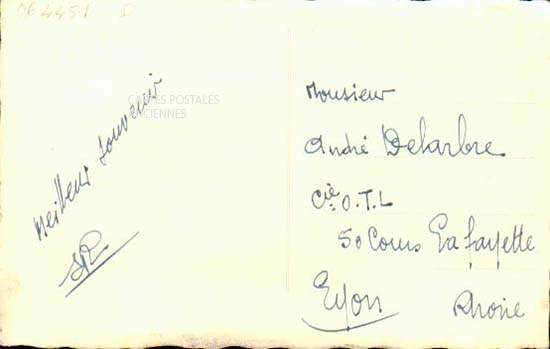 06 445-1 D
CARTES POSTALES
ANCIENNES
Meilleur souvenir
Monsieur
André Delarbre
Cie O.T.L
50 Cours Lafayette
Lyon Rhône